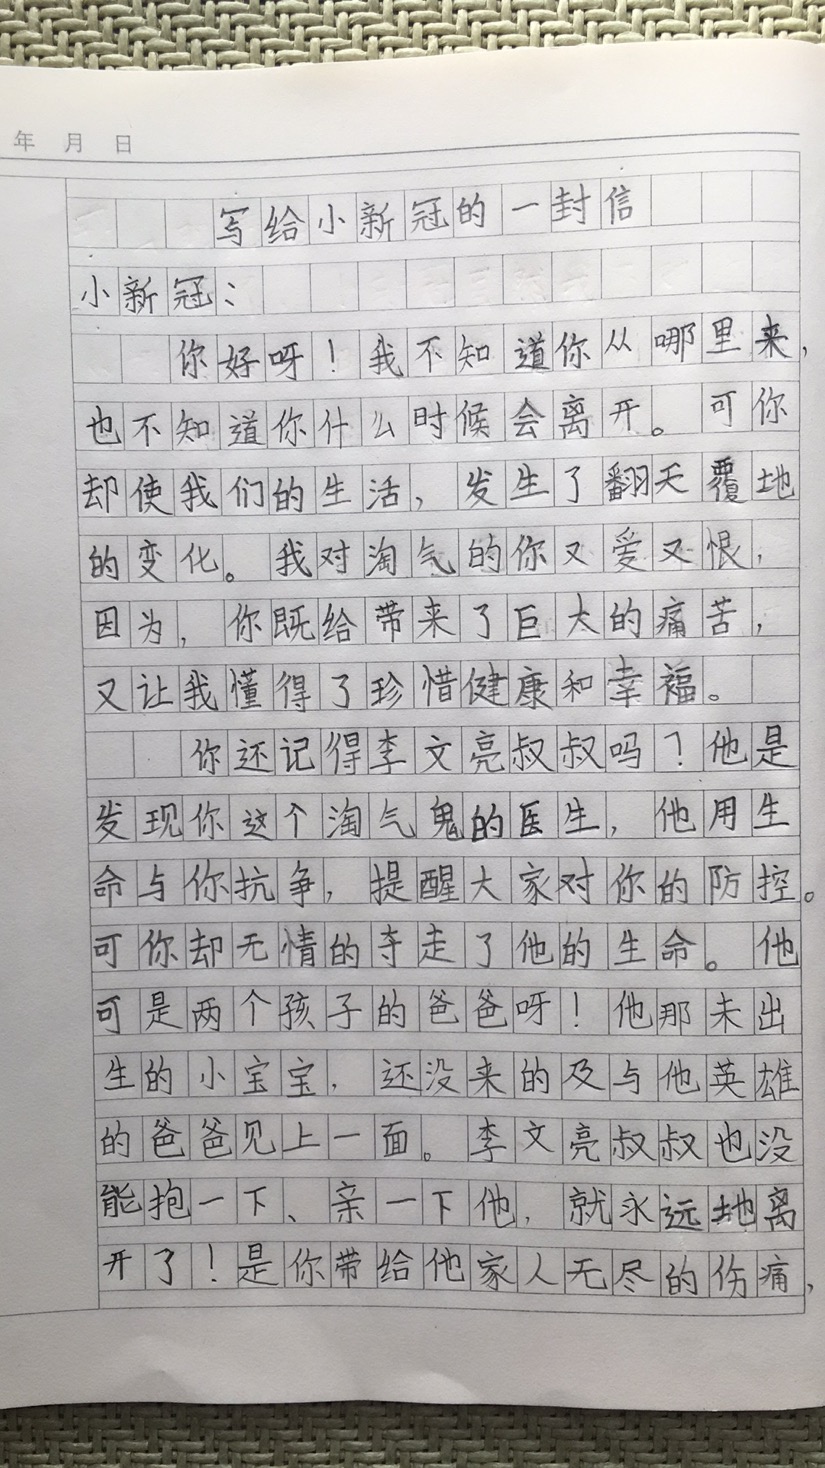 年 月 日
写给小新冠的一封信
小新冠：
你好呀！我不知道你从哪里来，
也不知道你什么时候会离开。可你
却使我们的生活，发生了翻天覆地
的变化。我对淘气的你又爱又恨，
因为，你既给带来了巨大的痛苦，
又让我懂得了珍惜健康和幸福。
你还记得李文亮叔叔吗？他是
发现你这个淘气鬼的医生，他用生
命与你抗争，提醒大家对你的防控。
可你却无情的夺走了他的生命。他
可是两个孩子的爸爸呀！他那未出
生的小宝宝，还没来的及与他英雄
的爸爸见上一面。李文亮叔叔也没
能抱一下、亲一下他，就永远地离
开了！是你带给他家人无尽的伤痛，